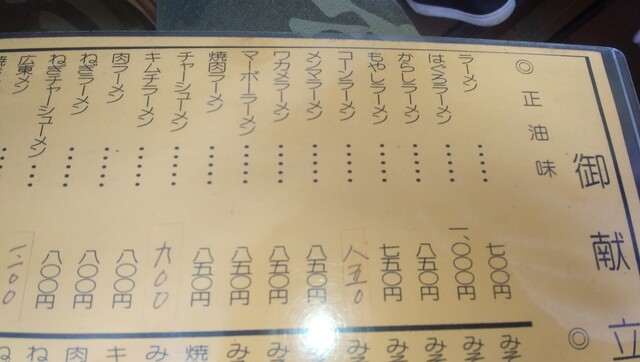 御献立
◎正油味
ラーメン……七〇〇円
はぐろラーメン……一、〇〇〇円
がらしラーメン……八五〇円
もやしラーメン……七五〇円
コーンラーメン……八五〇
メンマラーメン……八五〇円
ワカメラーメン……八五〇円
マーボーラーメン……八五〇円
焼肉ラーメン……八五〇円
チャーシューメン……九〇〇
キムチラーメン……八〇〇円
肉ラーメン……八〇〇円
ねぎラーメン……八〇〇円
ねぎチャーシューメン……
広東メン
◎
みそ
みそ
みそ
みそ
みそ
みそ
みそ
焼
み
キ
肉
ね
ね